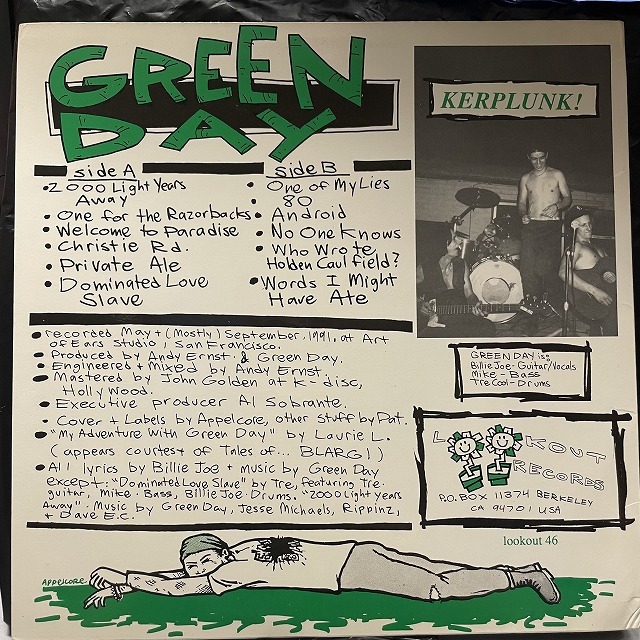 GREEN
DAY
side A
• 2000 Light Years
Away
• One for the Razorbacks
• Welcome to Paradise
• Christie Rd.
• Private Ale
• Dominated Love
Slave
side B
• One of My Lies
• 80
• Android
• No One Knows
• Who Wrote
Holden Caulfield?
• Words I Might
Have Ate
KERPLUNK!
• recorded May + (Mostly) September, 1991, at Art
of Ears Studio, San Francisco.
• Produced by Andy Ernst & Green Day.
• Engineered + Mixed by Andy Ernst.
• Mastered by John Golden at K-disc,
Hollywood.
• Executive producer Al Sobrante.
• Cover + Labels by Appelcore, other stuff by Pat.
• "My Adventure With Green Day" by Laurie L.
(appears courtest of Tales of... BLARG!)
• All lyrics by Billie Joe + music by Green Day
except: "Dominated Love Slave" by Tre, featuring Tre-
guitar, Mike-Bass, Billie Joe-Drums. "2000 Light years
Away" - Music by Green Day, Jesse Michaels, Rippinz,
+ Dave E.C.
GREEN DAY is:
Billie Joe-Guitar/Vocals
Mike - Bass
Tre Cool-Drums
LOOKOUT
RECORDS
P.O. BOX 11374 BERKELEY
CA 94701 USA
lookout 46
APPELCORE